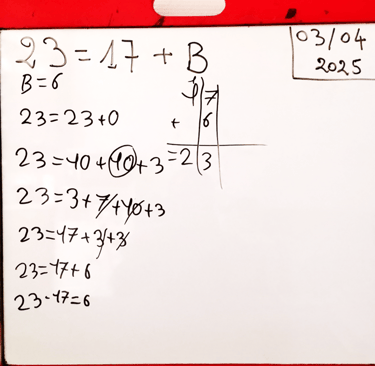 23=17+B
03/04
2025
B=6
23=23+0
23=10+10+3
23=3+7+10+3
23=17+3+3
23=17+6
23-17=6
17
+ 6
=23